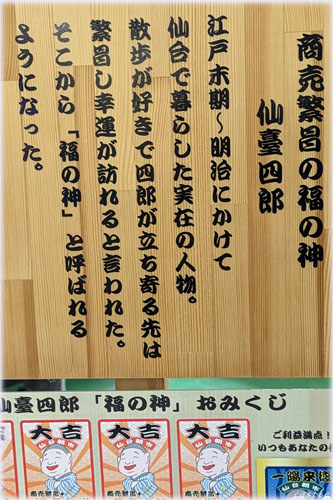 商売繁昌の福の神
仙臺四郎
江戸末期～明治にかけて
仙台で暮らした実在の人物。
散歩が好きで四郎が立ち寄る先は
繁昌し幸運が訪れると言われた。
そこから「福の神」と呼ばれる
ようになった。
仙臺四郎「福の神」おみくじ
大吉
大吉
大吉
ご利益満点！
いつもあなたの